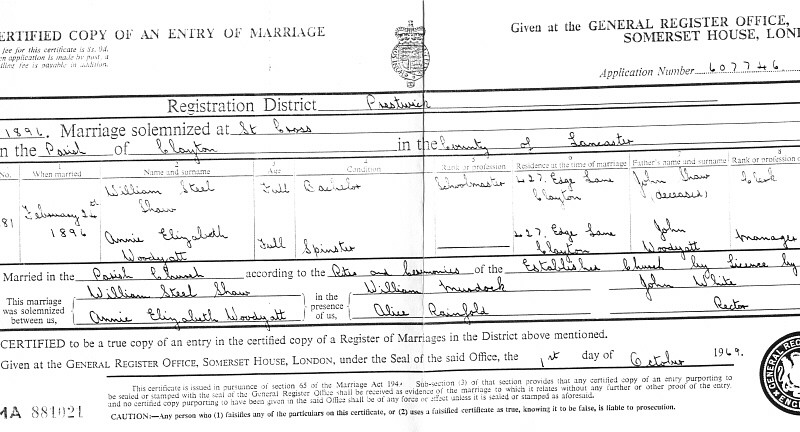 CERTIFIED COPY OF AN ENTRY OF MARRIAGE
Given at the GENERAL REGISTER OFFICE,
SOMERSET HOUSE, LOND
fee for this certificate is
n application is made by post. a
fee is payable in addition.
Application Number 607746
Registration District Prestwich
1896. Marriage solemnized at St Cross
in the Parish of Clayton in the County of Lancaster
No. When married Name and surname Age Condition Rank or profession Residence at the time of marriage Father's name and surname Rank or profession
81 February 26th 1896 William Steel Shaw Full Bachelor Schoolmaster 427, Edge Lane Clayton John Shaw (deceased) Clerk
Annie Elizabeth Woodyatt Full Spinster 427, Edge Lane Clayton John Woodyatt Manager
Married in the Parish Church according to the Rites and Ceremonies of the Established Church by Licence by
This marriage was solemnized between us, William Steel Shaw Annie Elizabeth Woodyatt in the presence of us, William Murdock Alice Rainfold John White Rector
CERTIFIED to be a true copy of an entry in the certified copy of a Register of Marriages in the District above mentioned.
Given at the GENERAL REGISTER OFFICE, SOMERSET HOUSE, LONDON, under the Seal of the said Office, the 1st day of October 1969.
This certificate is issued in pursuance of section 65 of the Marriage Act 1949. Sub-section (3) of that section provides that any certified copy of an entry purporting
to be sealed or stamped with the seal of the General Register Office shall be received as evidence of the marriage to which it relates without any further or other proof of the entry,
and no certified copy purporting to have been given in the said Office shall be of any force or effect unless it is sealed or stamped as aforesaid.
MA 881021
CAUTION:—Any person who (1) falsifies any of the particulars on this certificate, or (2) uses a falsified certificate as true, knowing it to be false, is liable to prosecution.